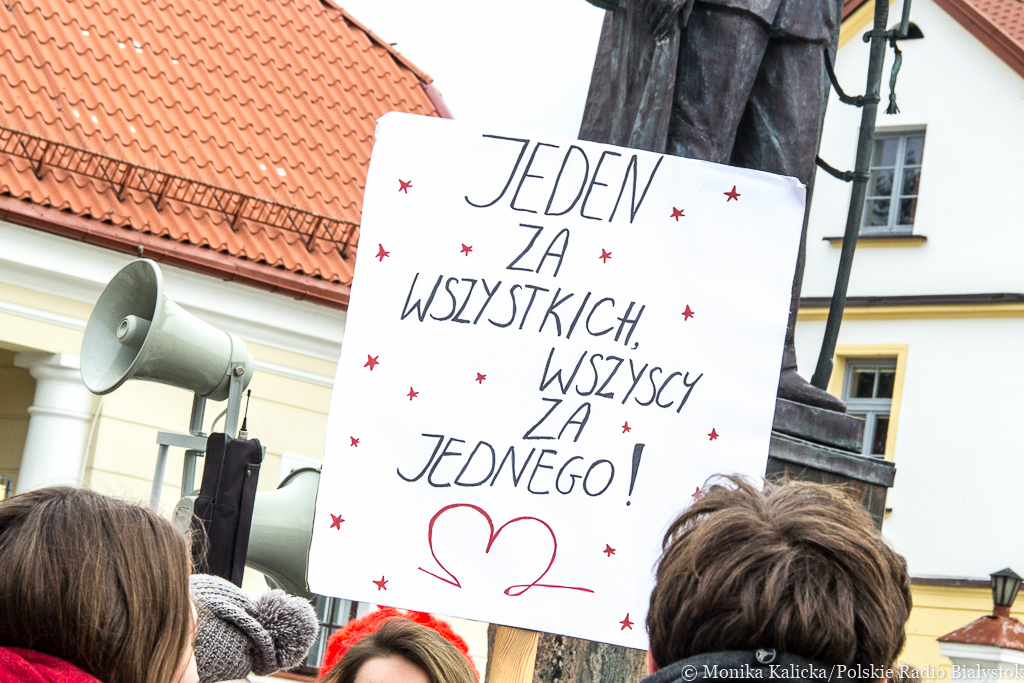 JEDEN
ZA
WSZYSTKICH,
WSZYSCY
ZA
JEDNEGO!
© Monika Kalicka/Polskie Radio Białystok